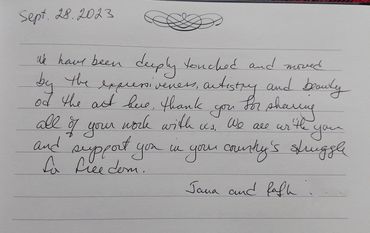 Sept. 28. 2023
We have been deeply touched and moved
by the expressiveness, artistry and beauty
of the art here. Thank you for sharing
all of your work with us. We are with you
and support you in your country's struggle
for freedom.
Jana and